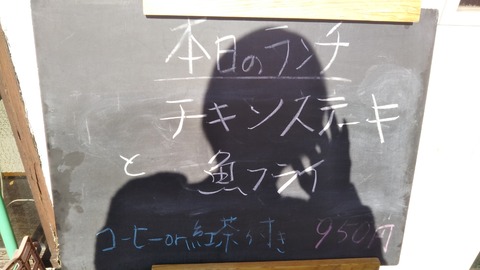 本日のランチ
チキンステーキ
と 魚フライ
コーヒーor紅茶付き 950円